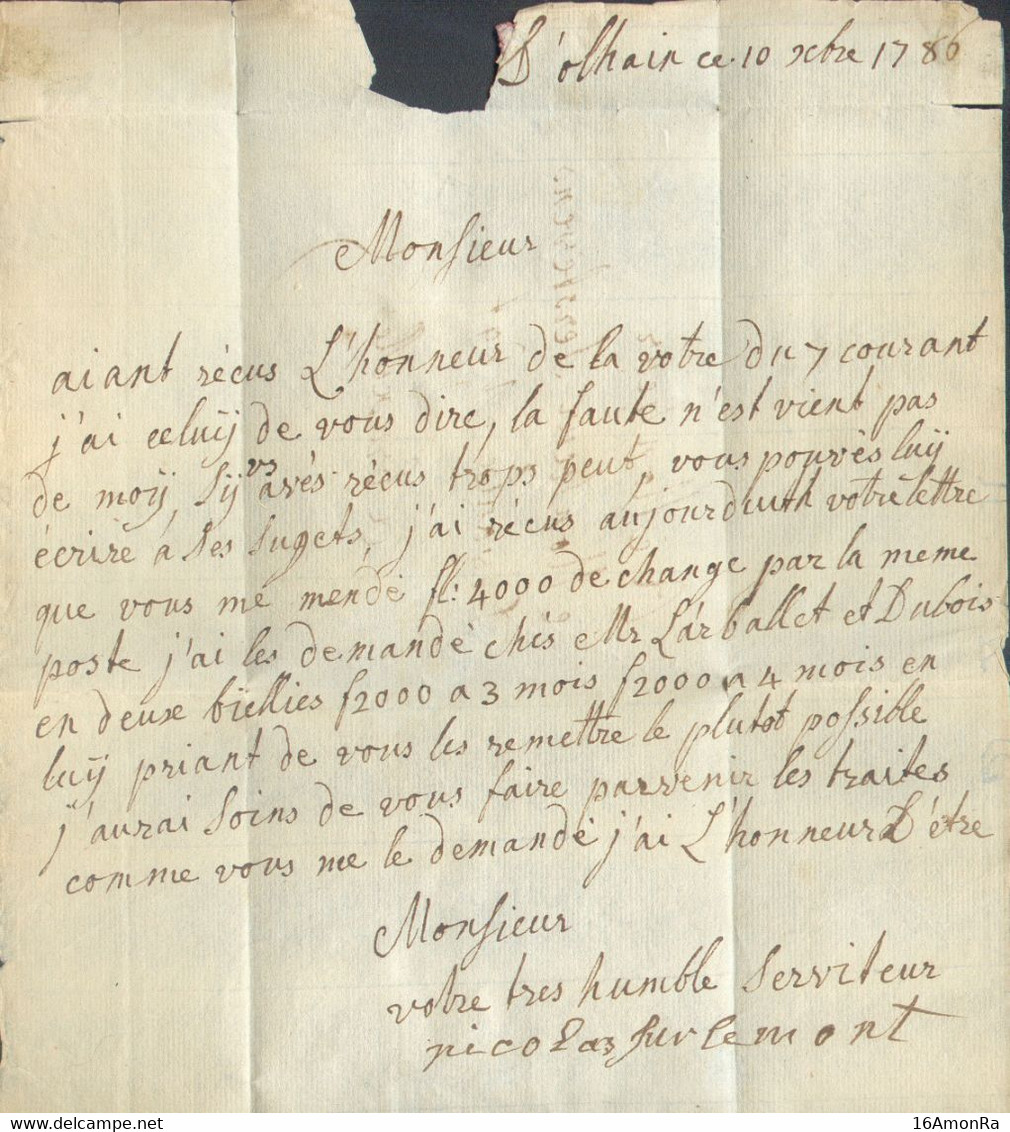 D'olhain ce 10 xbre 1786
Monsieur
aiant récus L'honneur de la votre du 7 courant
j'ai celuÿ de vous dire, la faute n'est vient pas
de moÿ, Sÿ vs avés récus trops peut, vous pouvés luÿ
écrire à Ses Sugets, j'ai récus aujourduith votre lettre
que vous me mende fl: 4000 de change par la meme
poste j'ai les demandé chés Mr Larballet et Dubois
en deux biellies f2000 a 3 mois f2000 a 4 mois en
luÿ priant de vous les remettre le plutot possible
j'aurai Soins de vous faire parvenir les traites
comme vous me le demandé j'ai L'honneur D'étre
Monsieur
votre tres humble Serviteur
nicolas surlemont
16AmonRa